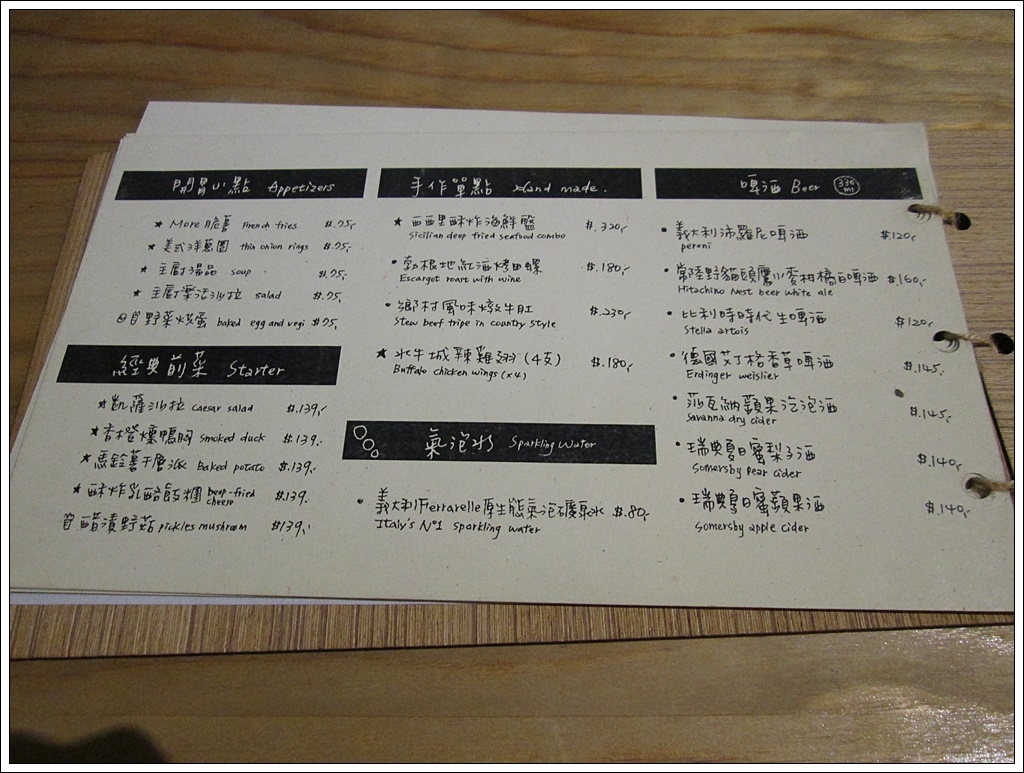 開胃小點 Appetizers
★ More脆薯 French fries $.75,-
★ 美式洋蔥圈 thin onion rings $.75,-
★ 主廚湯品 soup $.75,-
★ 主廚樂活沙拉 salad $.75,-
野菜烘蛋 baked egg and vegi $.75,
經典前菜 Starter
★ 凱薩沙拉 caesar salad $.139,-
★ 香橙燻鴨胸 smoked duck $.139,-
★ 馬鈴薯千層派 baked potato $.139,-
★ 酥炸乳酪飯糰 deep-fried cheese $.139,-
醋漬野菇 pickles mushroom $139,-
手作單點 Hand made.
★ 西西里酥炸海鮮盤 $.320,-
Sicilian deep fried seafood combo
• 勃根地紅酒烤田螺 $.180,-
Escargot roast with wine
• 鄉村風味燉牛肚 $.230,-
Stew beef tripe in country style
★ 水牛城辣雞翅(4支) $.180,-
Buffalo chicken wings (x4)
氣泡水 Sparkling Water
• 義大利Ferrarelle原生態氣泡礦泉水 $.80,-
Italy's Nº1 sparkling water
啤酒 Beer 330 ml
• 義大利沛羅尼啤酒 $.120,-
peroni
• 常陸野貓頭鷹小麥柑橘白啤酒 $.160,-
Hitachino Nest beer white ale
• 比利時時代生啤酒 $120,-
Stella artois
• 德國艾丁格香草啤酒 $.145,-
Erdinger weisbier
• 莎瓦納蘋果汽泡酒 $.145,-
Savanna dry cider
• 瑞典夏日蜜梨子酒 $.140,-
Somersby pear cider
• 瑞典夏日蜜蘋果酒 $.140,-
Somersby apple cider